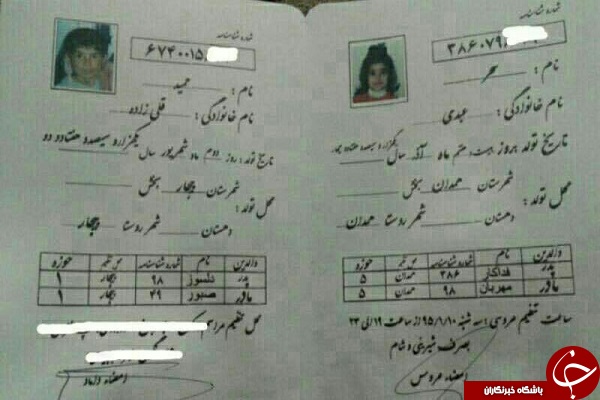 شماره شناسنامه
۳۸۶۰۷۹
نام : سحر
نام خانوادگی : عبدی
تاریخ تولد بروز بیست و هفتم ماه آذر سال یکهزار و سیصد و هفتاد و چهار
محل تولد : شهرستان همدان بخش
دهستان شهر روستا همدان
والدین نام شماره شناسنامه محل صدور حوزه
پدر فداکار ۳۸۶ همدان ۵
مادر مهربان ۹۸ همدان ۵
ساعت تنظیم عروسی : سه شنبه ۹۵/۱/۱۰ از ساعت ۱۹ الی ۲۴
بصرف شیرینی و شام
امضاء عروس
شماره شناسنامه
۶۷۴۰۰۱۵
نام : حمید
نام خانوادگی : قلی زاده
تاریخ تولد : روز دوم ماه شهریور سال یکهزار و سیصد و هفتاد و دو
محل تولد : شهرستان بیجار بخش
دهستان شهر روستا بیجار
والدین نام شماره شناسنامه محل صدور حوزه
پدر دلسوز ۹۸ بیجار ۱
مادر صبور ۲۹ بیجار ۱
محل تنظیم مراسم
امضاء داماد
باشگاه خبرنگاران